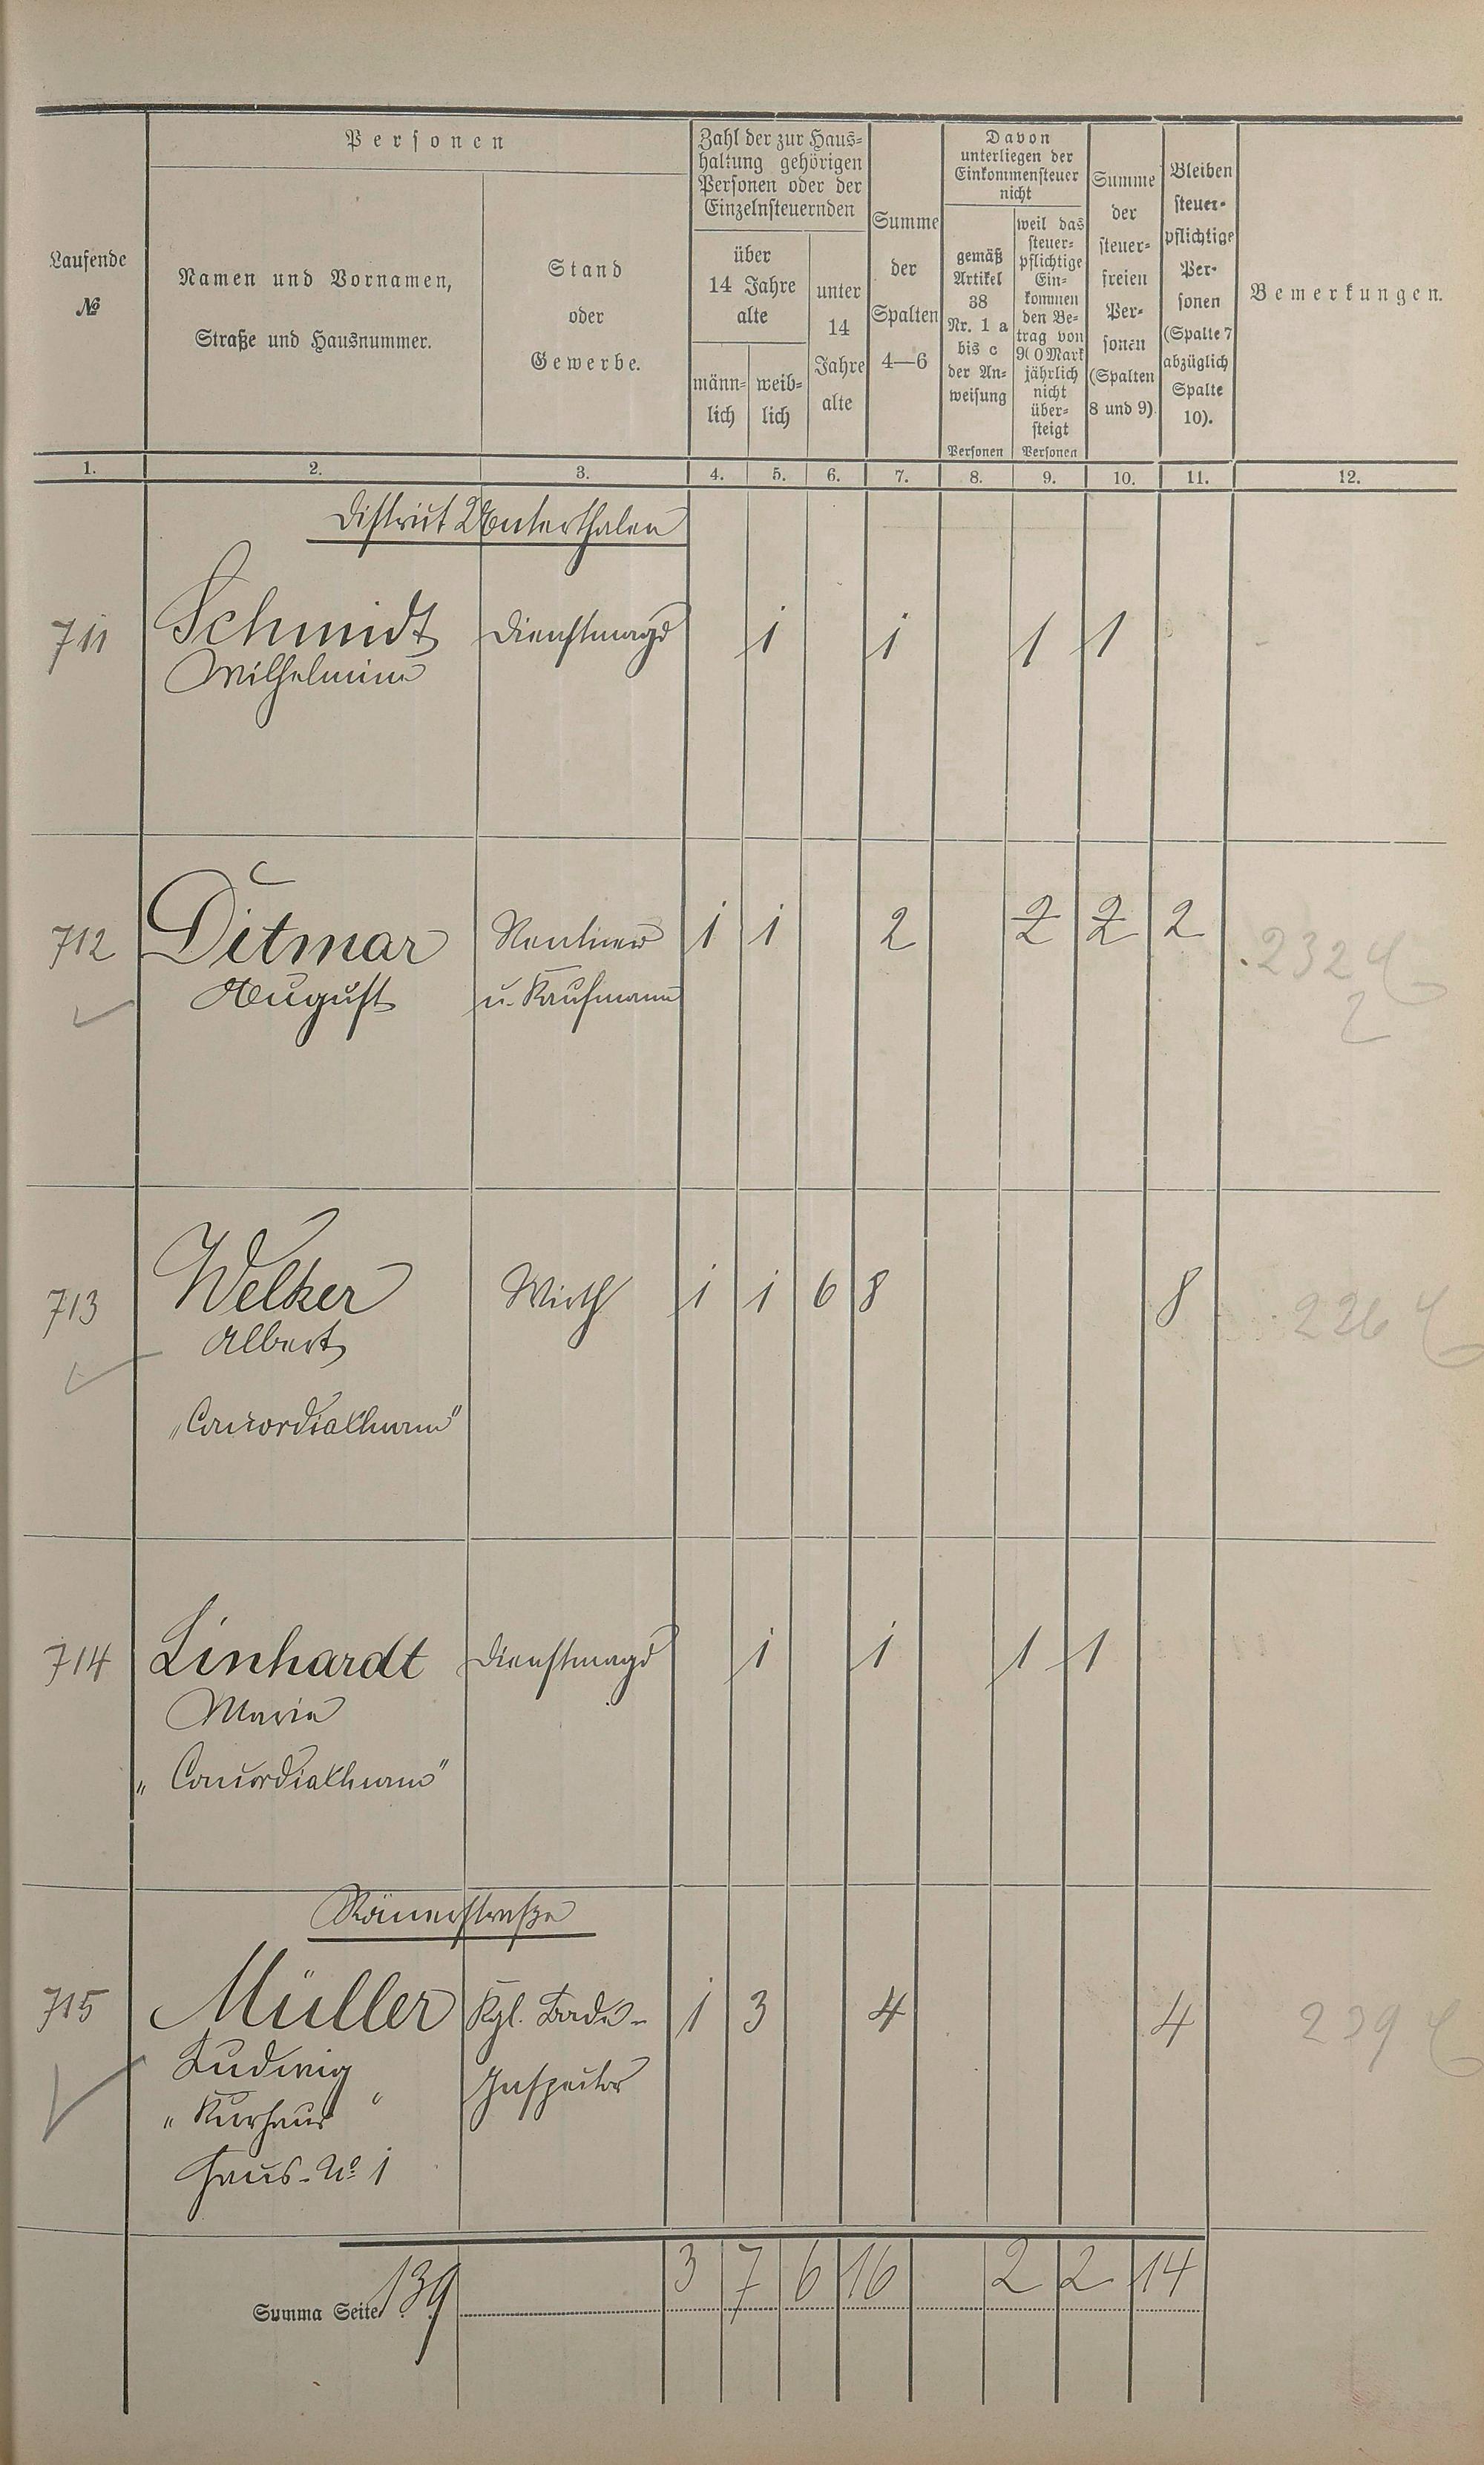 Laufende
№
Personen
Namen und Vornamen,
Straße und Hausnummer.
Stand
oder
Gewerbe.
Zahl der zur Haus-
haltung gehörigen
Personen oder der
Einzelnsteuernden
über
14 Jahre
alte
männ-
lich
weib-
lich
unter
14
Jahre
alte
Summe
der
Spalten
4—6
Davon
unterliegen der
Einkommensteuer
nicht
gemäß
Artikel
38
Nr. 1 a
bis c
der An-
weisung
Personen
weil das
steuer-
pflichtige
Ein-
kommen
den Be-
trag von
900 Mark
jährlich
nicht
über-
steigt
Personen
Summe
der
steuer-
freien
Per-
sonen
(Spalten
8 und 9)
Bleiben
steuer-
pflichtige
Per-
sonen
(Spalte 7
abzüglich
Spalte
10).
Bemerkungen.
1. 2. 3. 4. 5. 6. 7. 8. 9. 10. 11. 12.
District Unterthalen
711 Schmidt Dienstmagd 1 1 1 1
Wilhelmine
712 Ditmar Rentner 1 1 2 2 2 2 232
August u. Kaufmann 2
713 Welker Wirth 1 1 6 8 8 226
Albert
„Concordiathurm"
714 Linhardt Dienstmagd 1 1 1 1
Maria
„Concordiathurm"
Römerstraße
715 Müller Kgl. Bade- 1 3 4 4 239
Ludwig Inspector
„Kurhaus"
Haus-No 1
Summa Seite 139 3 7 6 16 2 2 14